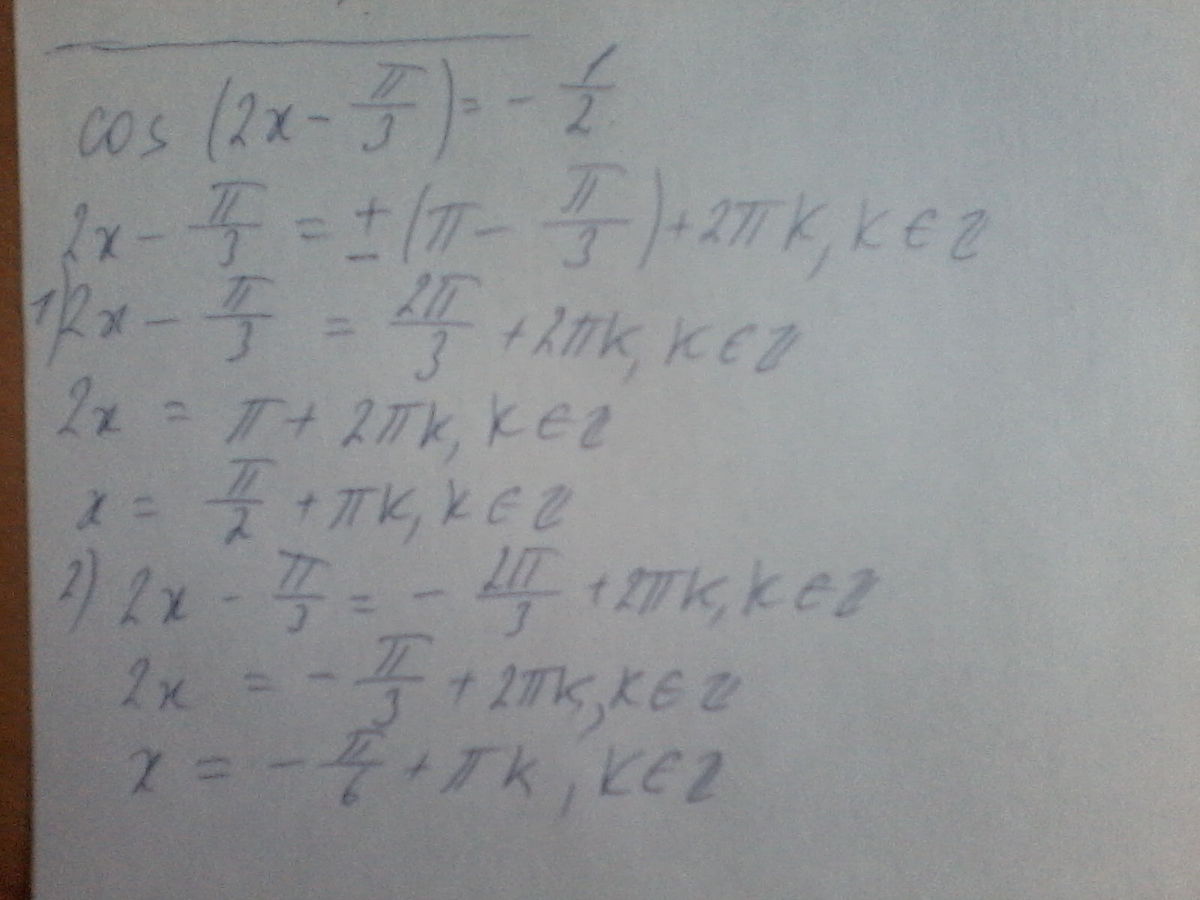 cos (2x - π/3) = - 1/2
2x - π/3 = ± (π - π/3) + 2πk, k ∈ Z
1) 2x - π/3 = 2π/3 + 2πk, k ∈ Z
2x = π + 2πk, k ∈ Z
x = π/2 + πk, k ∈ Z
2) 2x - π/3 = - 2π/3 + 2πk, k ∈ Z
2x = - π/3 + 2πk, k ∈ Z
x = - π/6 + πk, k ∈ Z